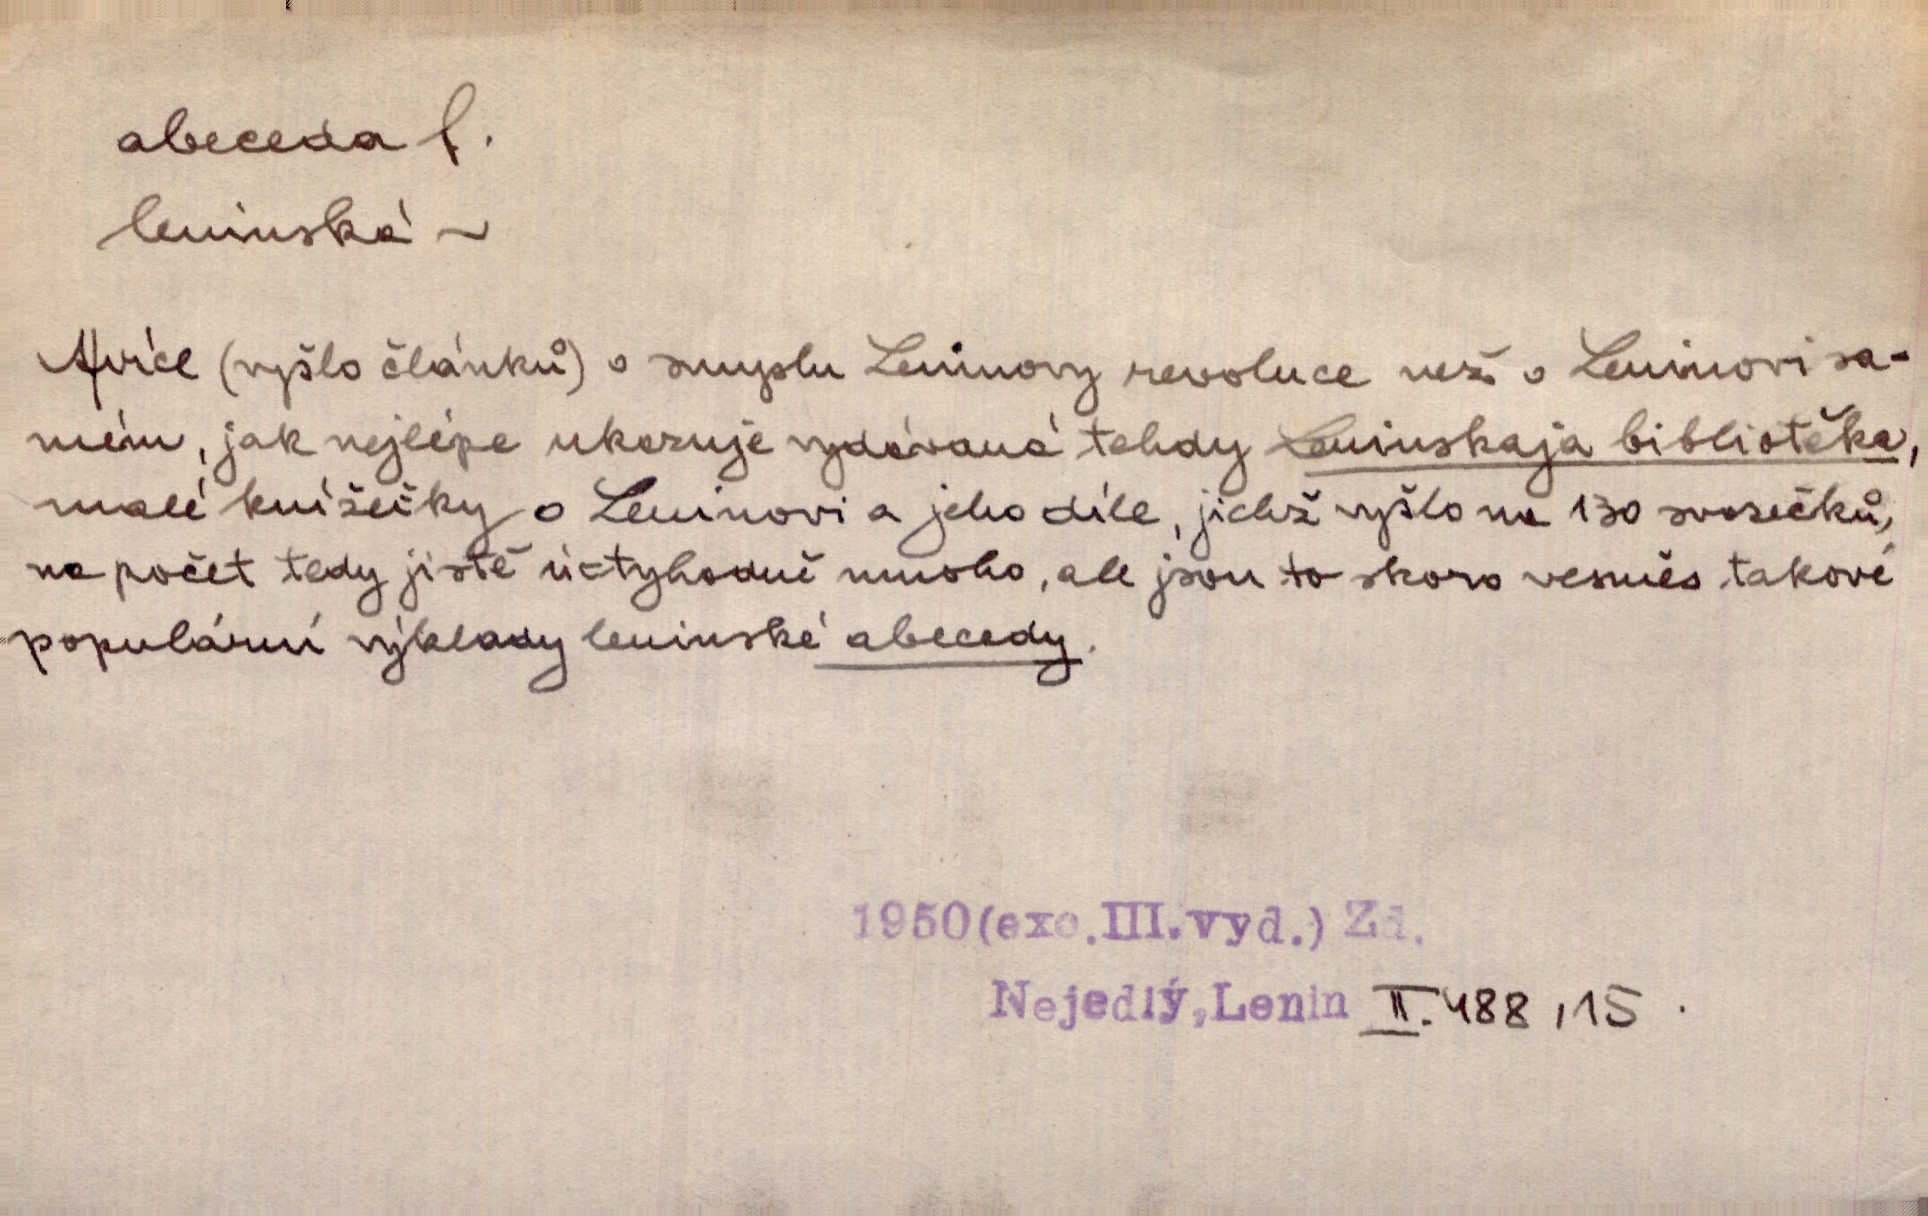 abeceda f.
leninská ~
A více (vyšlo článků) o smyslu Leninovy revoluce než o Leninovi sa-
mém, jak nejlépe ukazuje vydávaná tehdy Leninskaja bibliotěka,
malé knížečky o Leninovi a jeho díle, jichž vyšlo na 130 svazečků,
na počet tedy jistě úctyhodně mnoho, ale jsou to skoro vesměs takové
populární výklady leninské abecedy.
1950(exc.III.vyd.) Zd.
Nejedlý,Lenin II. 488,15.